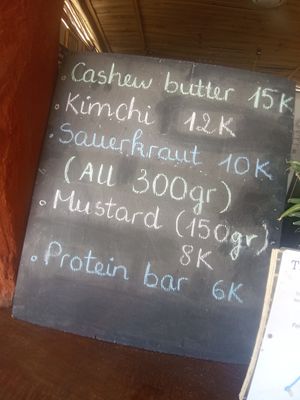 . Cashew butter 15K
. Kimchi 12K
. Sauerkraut 10K
(All 300gr)
. Mustard (150gr)
8K
. Protein bar 6K